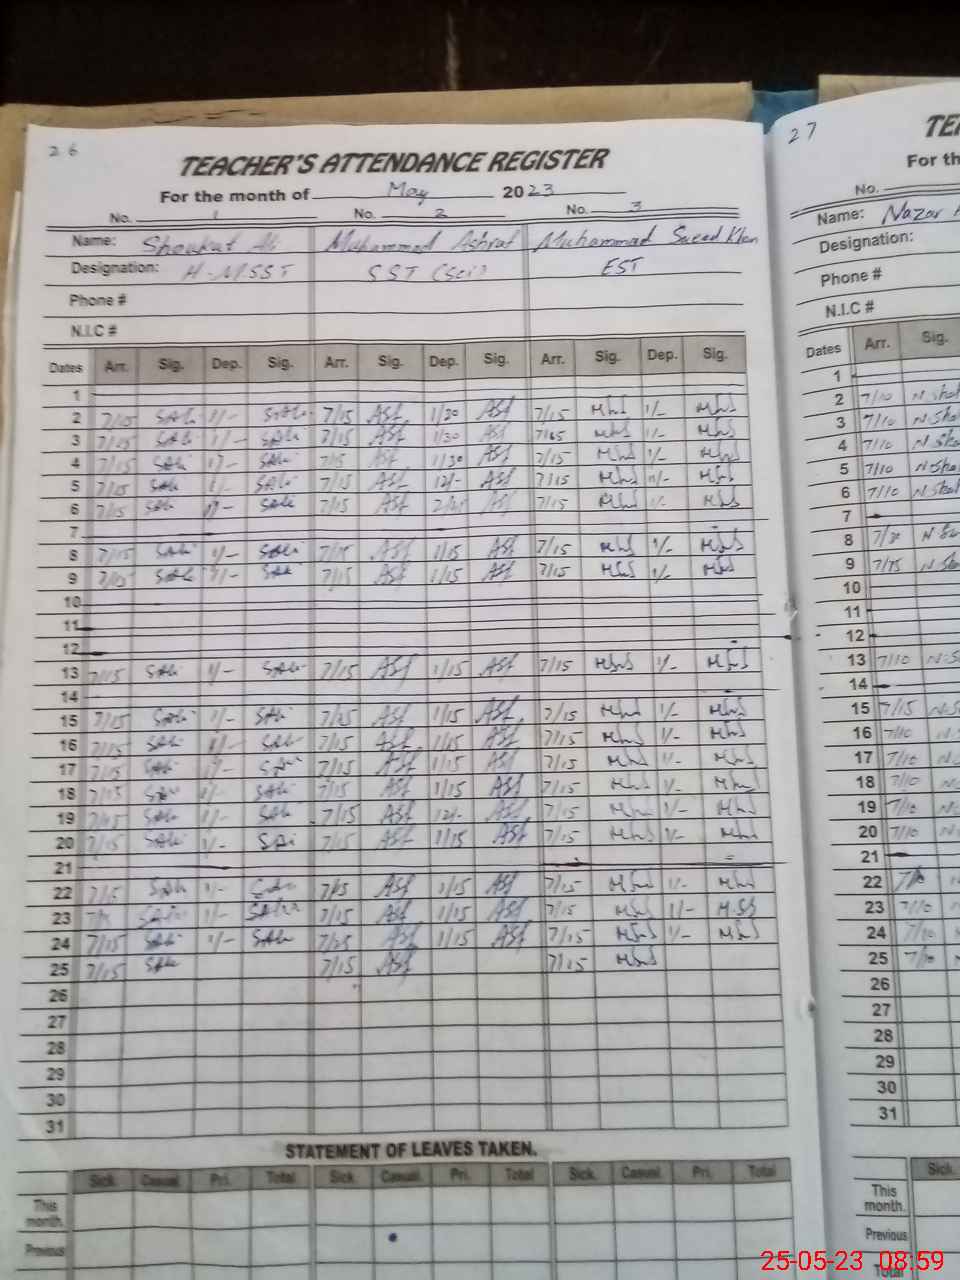 26
TEACHER'S ATTENDANCE REGISTER
For the month of May 2023
No. 1 No. 2 No. 3
Name: Shoukat Ali Muhammad Ashraf Muhammad Saeed Khan
Designation: H-M.SST SST (Sci) EST
Phone #
N.I.C #
Dates Arr. Sig. Dep. Sig. Arr. Sig. Dep. Sig. Arr. Sig. Dep. Sig.
1
2 7/15 SAli 1/- SAli 7/15 ASf 1/30 ASf 7/15 MSS 1/- MSS
3 7/15 SAli 1/- SAli 7/15 ASf 1/30 ASf 7/15 MSS 1/- MSS
4 7/15 SAli 1/- SAli 7/15 ASf 1/30 ASf 7/15 MSS 1/- MSS
5 7/15 SAli SAli 7/15 ASf 12/- ASf 7/15 MSS MSS
6 7/15 SAli 1/- SAli 7/15 ASf ASf 7/15 MSS 1/- MSS
7
8 7/15 SAli 1/- SAli 7/15 ASf 1/15 ASf 7/15 MSS 1/- MSS
9 7/15 SAli 1/- SAli 7/15 ASf 1/15 ASf 7/15 MSS 1/- MSS
10
11
12
13 7/15 SAli 1/- SAli 7/15 ASf 1/15 ASf 7/15 MSS 1/- MSS
14
15 7/15 SAli 1/- SAli 7/15 ASf 1/15 ASf 7/15 MSS 1/- MSS
16 7/15 SAli 1/- SAli 7/15 ASf 1/15 ASf 7/15 MSS 1/- MSS
17 7/15 SAli 1/- SAli 7/15 ASf 1/15 ASf 7/15 MSS 1/- MSS
18 7/15 SAli 1/- SAli 7/15 ASf 1/15 ASf 7/15 MSS 1/- MSS
19 7/15 SAli 1/- SAli 7/15 ASf 12/- ASf 7/15 MSS 1/- MSS
20 7/15 SAli 1/- SAli 7/15 ASf 1/15 ASf 7/15 MSS 1/- MSS
21
22 7/15 SAli 1/- SAli 7/15 ASf 1/15 ASf 7/15 MSS 1/- MSS
23 7/15 SAli 1/- SAli 7/15 ASf 1/15 ASf 7/15 MSS 1/- M.SS
24 7/15 SAli 1/- SAli 7/15 ASf 1/15 ASf 7/15 MSS 1/- MSS
25 7/15 SAli 7/15 ASf 7/15 MSS
26
27
28
29
30
31
STATEMENT OF LEAVES TAKEN.
Sick. Casual. Pri. Total Sick. Casual. Pri. Total Sick. Casual. Pri. Total
This month.
Previous
27
TE
For th
No.
Name: Nazar
Designation:
Phone #
N.I.C #
Dates Arr. Sig.
1
2 7/10 N.Sha
3 7/10 N.Sha
4 7/10 N.Sha
5 7/10 N.Sha
6 7/10 N.Sha
7
8 N.S
9 7/15 N.Sha
10
11
12
13 7/10 N.S
14
15 7/15 N.S
16 7/10 N.
17 7/10 N
18 7/10 N
19 7/10 N
20 7/10 N
21
22 N
23 7/10 N
24 7/10 N
25 7/10 N
26
27
28
29
30
31
Sick.
This month.
Previous
Total
25-05-23 08:59